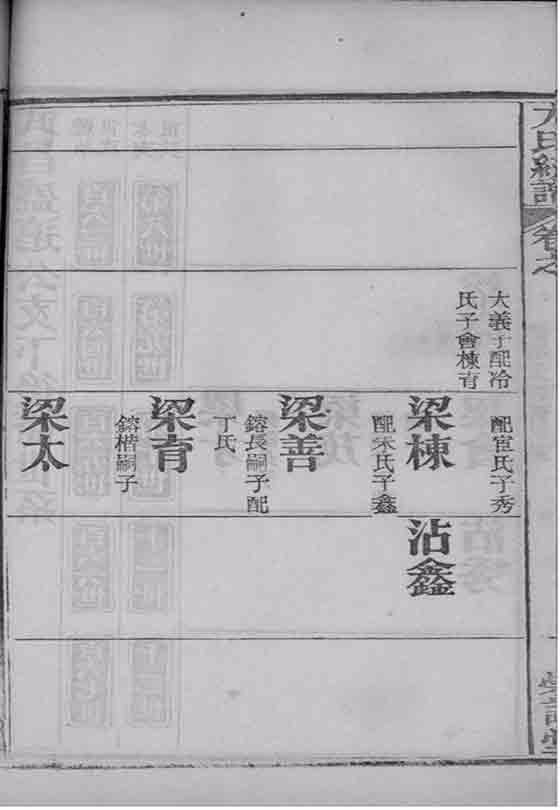 氏統譜
卷之
大義子配冷
氏子會棟育
配宦氏子秀
梁棟
配宋氏子鑫
梁善
鎔長嗣子配
丁氏
梁育
鎔楷嗣子
梁太
沾鑫